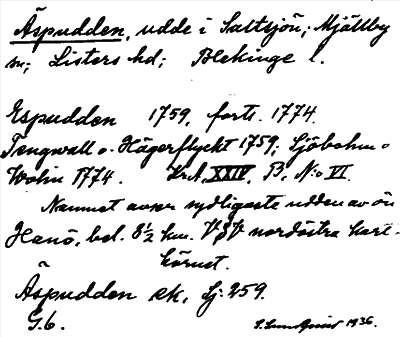 Äspudden, udde i Saltsjön; Mjällby
sn; Listers hd; Blekinge l.
Espudden 1759, forts. 1774.
Tengwall o. Hägerflyckt 1759; Sjöbohm o
Wolin 1774. Kr.A. XXIV, B, No VI.
Namnet avser sydligaste udden av ön
Hanö, bel. 8½ km. VSV nordöstra kart-
hörnet.
Äspudden ek, Lj: 259.
G.6. S. Lundquist 1936.